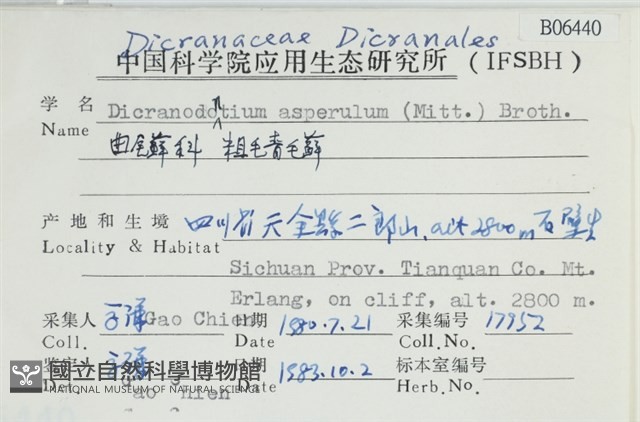 B06440
Dicranaceae Dicranales
中国科学院应用生态研究所 (IFSBH)
学名 Dicranodontium asperulum (Mitt.) Broth.
Name 曲尾蘚科 粗毛青毛蘚
产地和生境 四川省天全縣二郎山, alt 2800m 石壁生
Locality & Habitat
Sichuan Prov. Tianquan Co. Mt.
Erlang, on cliff, alt. 2800 m.
采集人 Gao Chien 日期 1980.7.21 采集编号 17952
Coll. Date Coll.No.
鉴定人 日期 1983.10.2 标本室编号
Det. Gao Chien Date Herb.No.
國立自然科學博物館
NATIONAL MUSEUM OF NATURAL SCIENCE